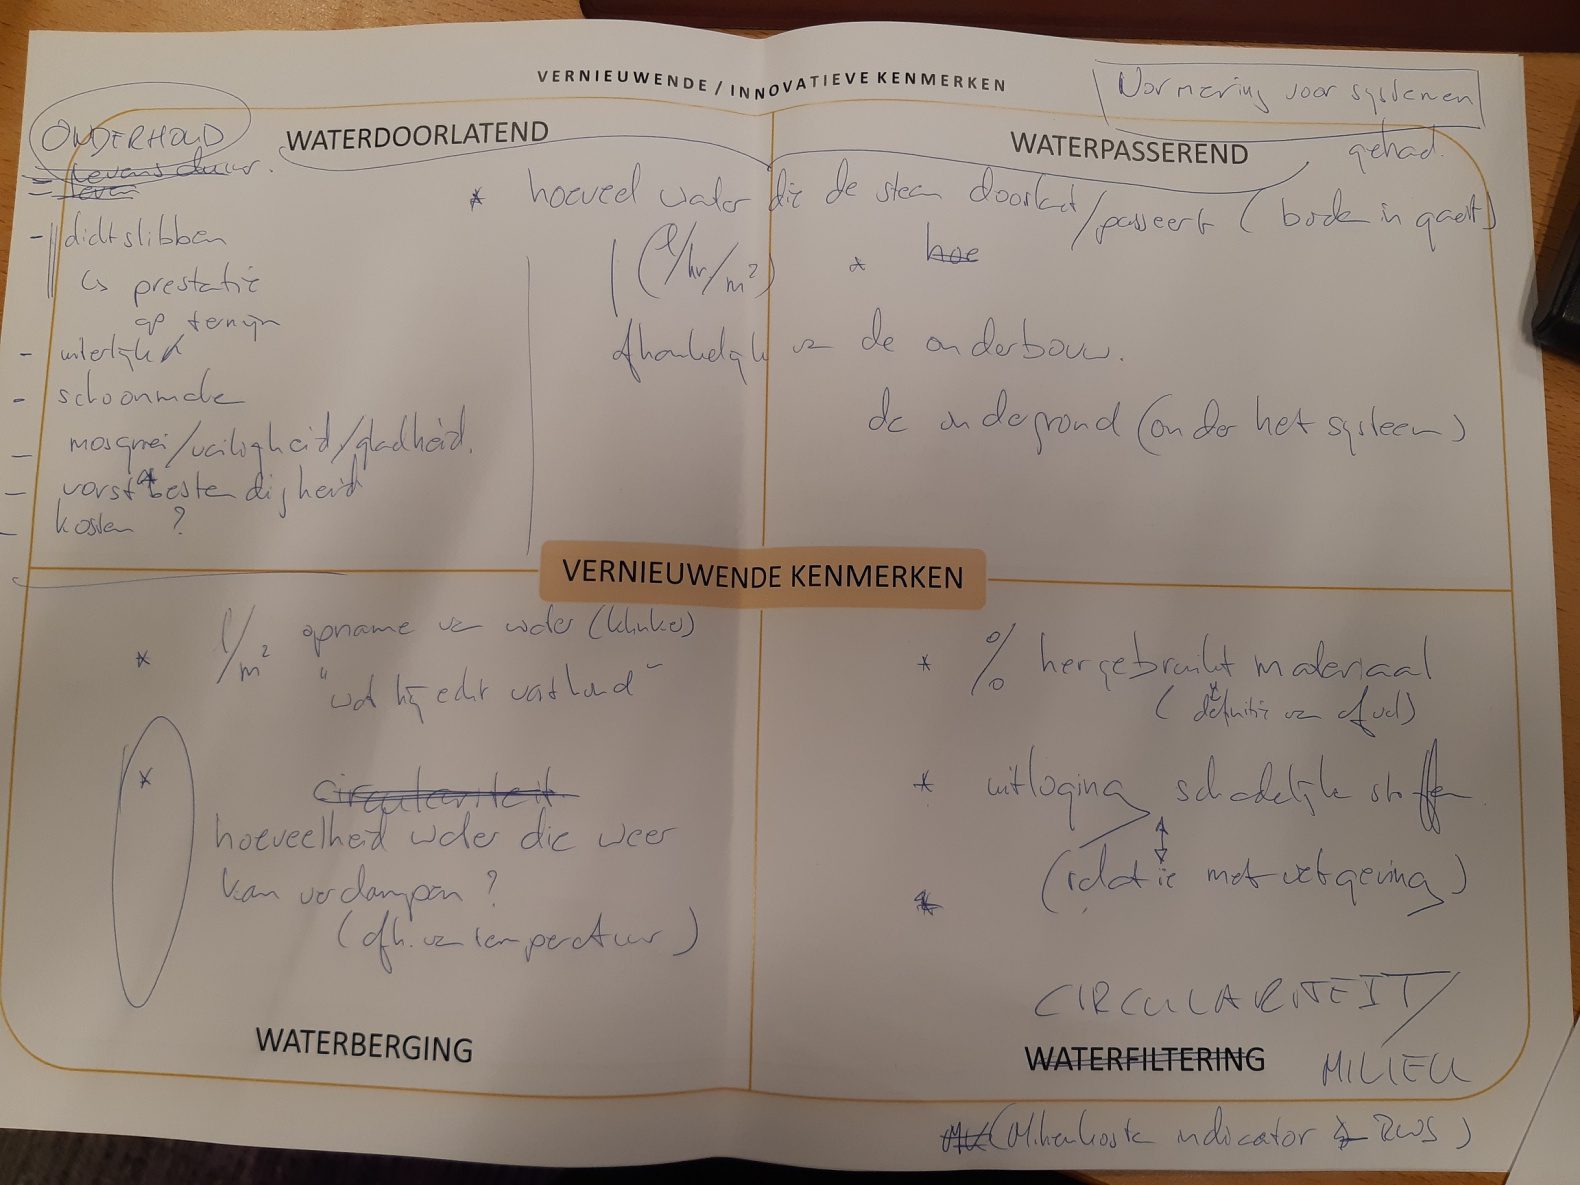 VERNIEUWENDE / INNOVATIEVE KENMERKEN
Normering voor systemen
gehad.
ONDERHOUD
WATERDOORLATEND
WATERPASSEREND
levensduur.
leven
- dichtslibben
↳ prestatie
op termijn
- uiterlijk
- schoonmake
- mosgroei/veiligheid/gladheid.
- vorstbestendigheid
- kosten ?
* hoeveel water die de steen doorlaat/passeert (boek in gaat)
(l/hr/m²)
* hoe
afhankelijk van de onderbouw.
de ondergrond (onder het systeem)
VERNIEUWENDE KENMERKEN
* l/m² opname van water (klinker)
"wat hij echt vasthoud"
* circulariteit
hoeveelheid water die weer
kan verdampen ?
(afh. van temperatuur)
WATERBERGING
* % hergebruikt materiaal
(definitie van afval)
* uitloging schadelijke stoffen
(relatie met wetgeving)
*
CIRCULARITEIT/
WATERFILTERING MILIEU
(Milieukosten indicator RWS)